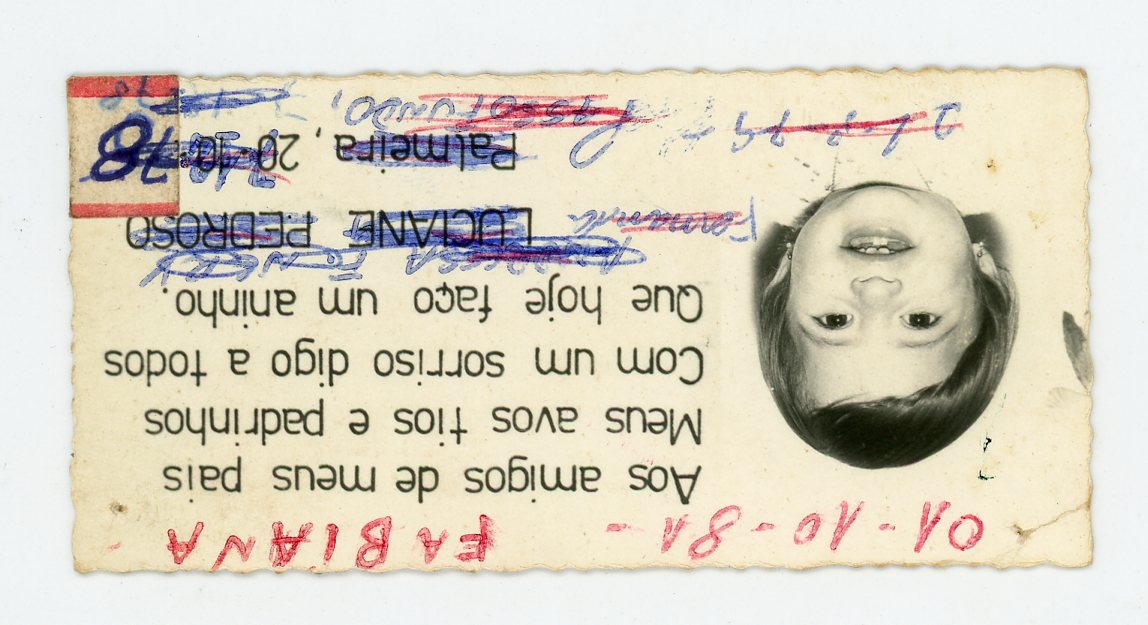 01-10-81- FABIANA-
Aos amigos de meus pais
Meus avos tios e padrinhos
Com um sorriso digo a todos
Que hoje faço um aninho.
Fernanda LUCIANE PEDROSO
Palmeira, 20-10 78
PASSO FUNDO,